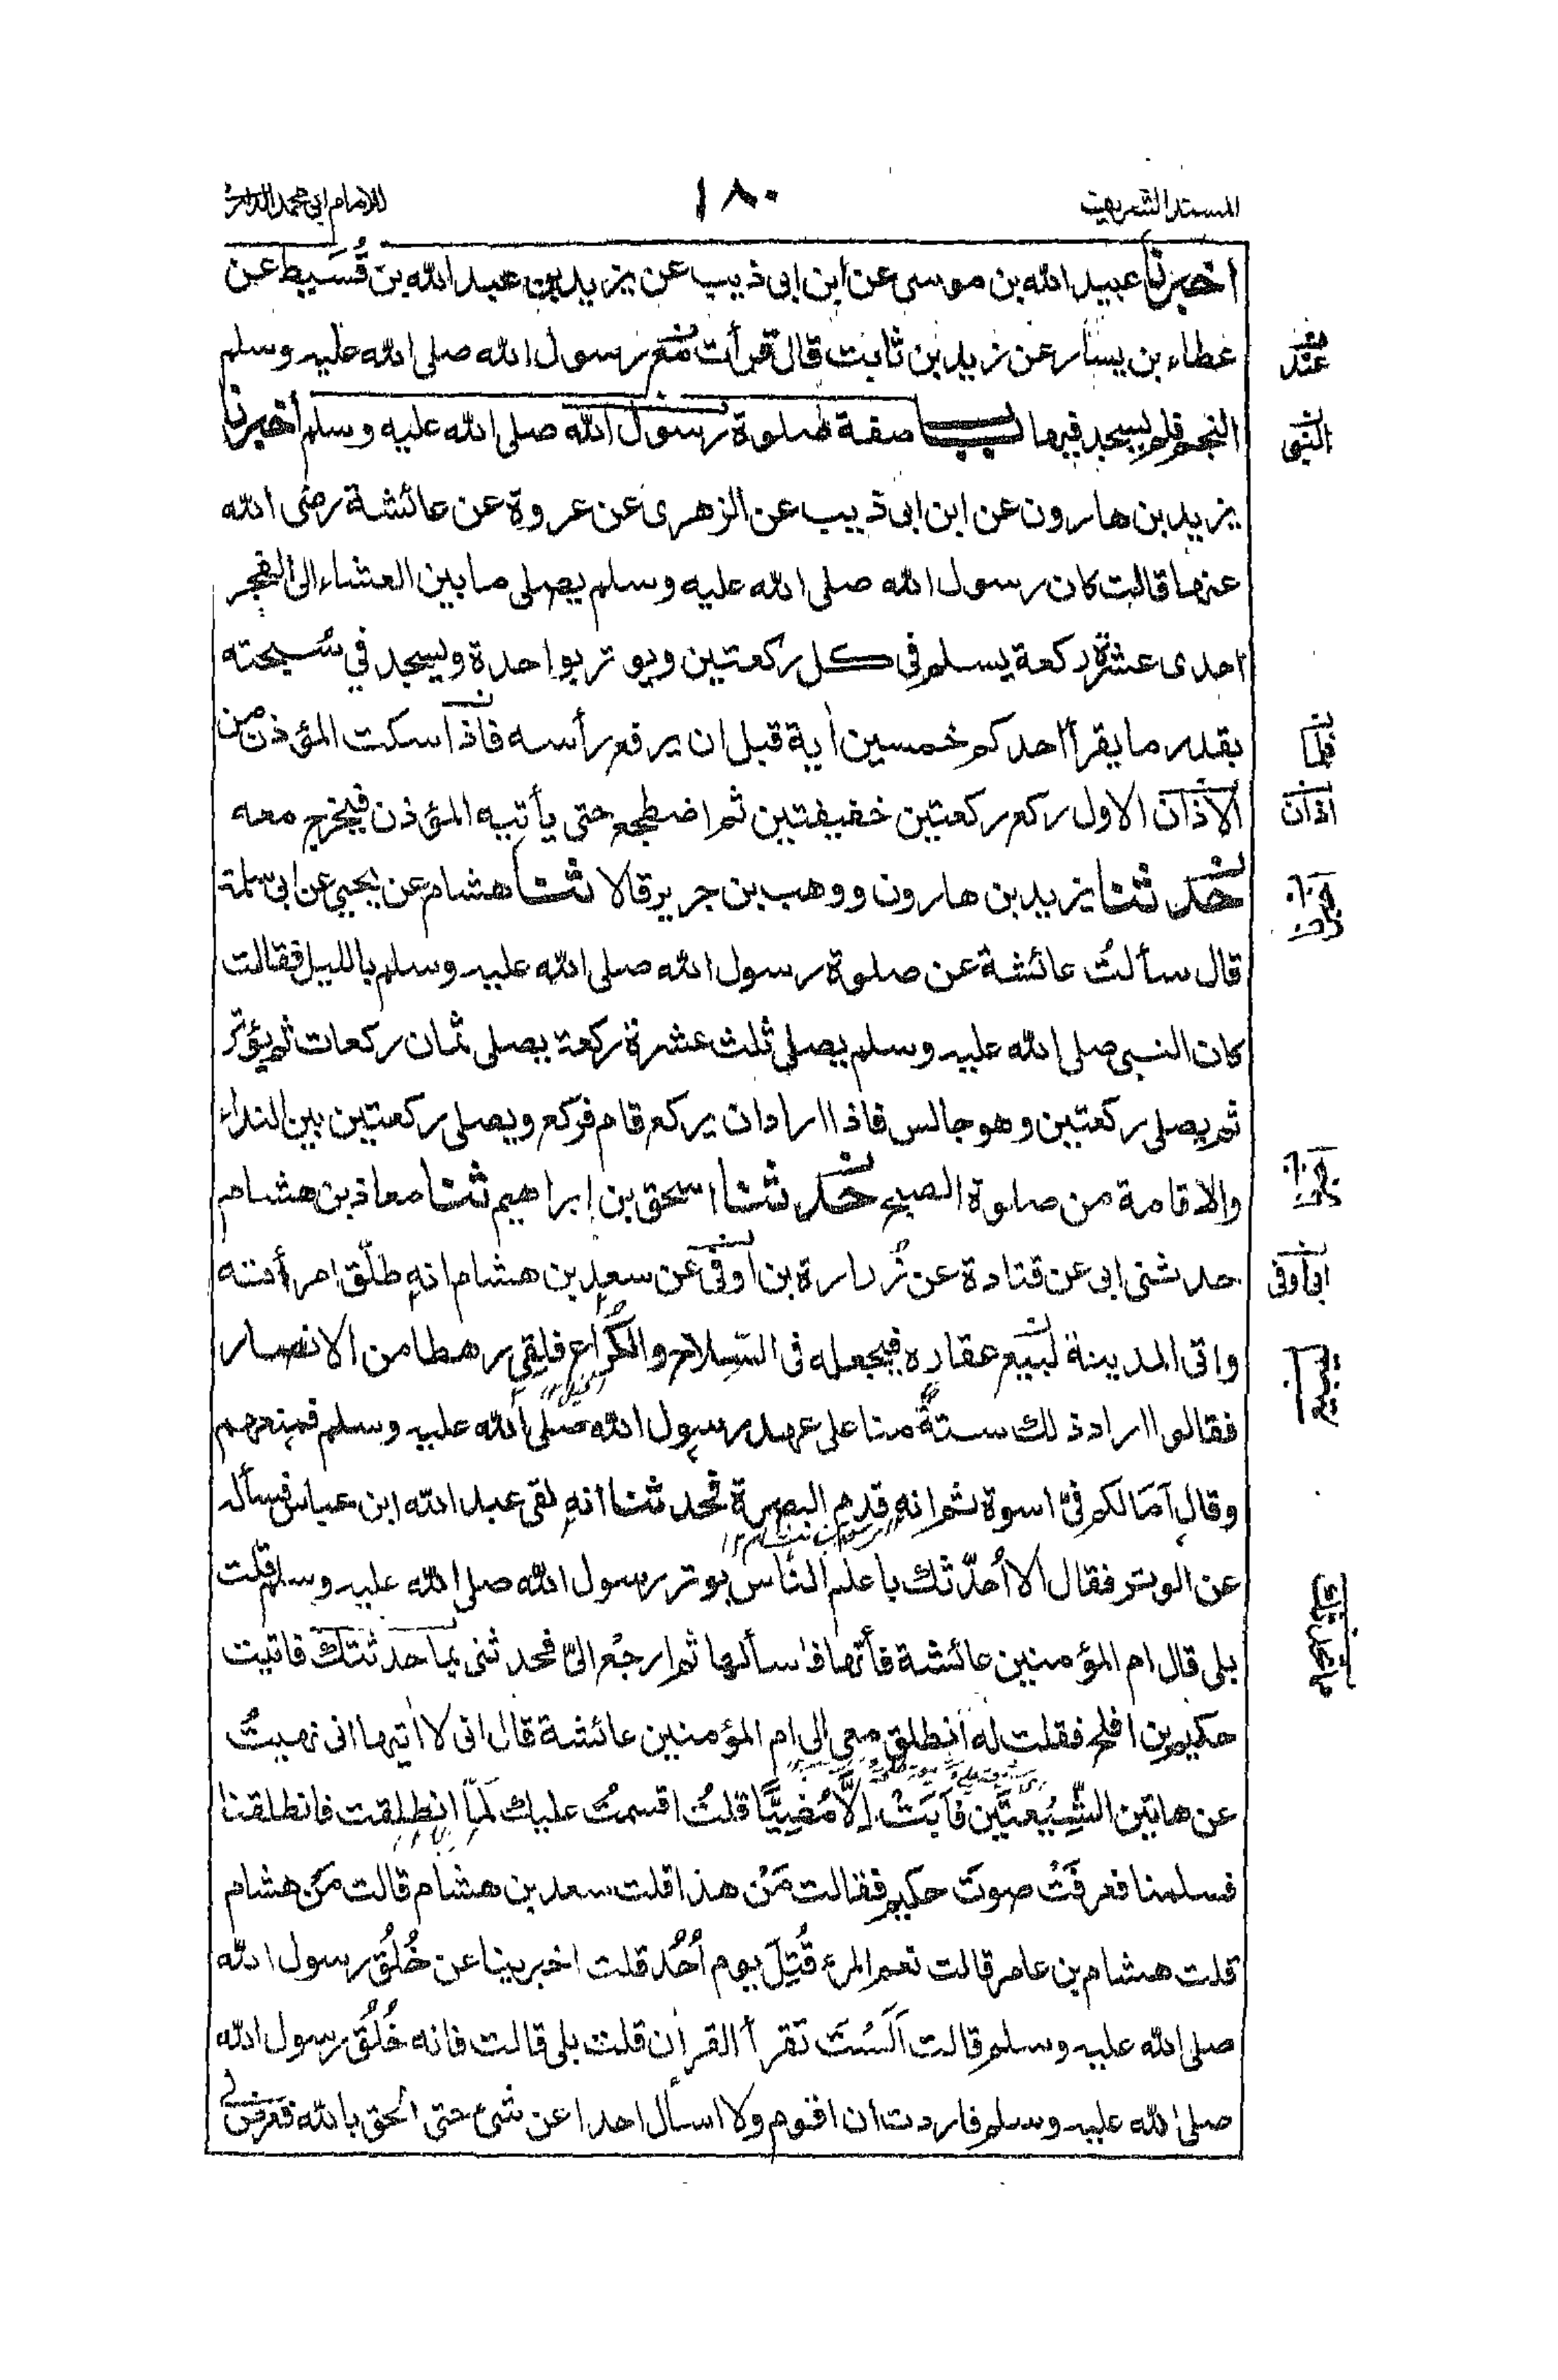 المسند الشريف
١٨٠
للامام ابي محمد الدارمي
اخبرنا عبيد الله بن موسى عن ابن ابى ذيب عن يزيد بن عبد الله بن قُسَيط عن
عند
عطاء بن يسار عن زيد بن ثابت قال قرأت مع رسول الله صلى الله عليه وسلم
النبى
النجم فلم يسجد فيها باب صفة صلوة رسول الله صلى الله عليه وسلم اخبرنا
يزيد بن هارون عن ابن ابى ذيب عن الزهرى عن عروة عن عائشة رضى الله
عنها قالت كان رسول الله صلى الله عليه وسلم يصلى ما بين العشاء الى الفجر
احدى عشرة ركعة يسلم فى كل ركعتين ويوتر بواحدة ويسجد في سُبحته
بقدر ما يقرأ احدكم خمسين أية قبل ان يرفع رأسه فاذا سكت المؤذن من
اذان
الاذان الاول ركع ركعتين خفيفتين ثم اضطجع حتى يأتيه المؤذن فيخرج معه
حدثنا يزيد بن هارون ووهب بن جرير قالا ثنا هشام عن يحيى عن ابى سلمة
قال سألتُ عائشة عن صلوة رسول الله صلى الله عليه وسلم بالليل فقالت
كان النبى صلى الله عليه وسلم يصلى ثلث عشرة ركعة يصلى ثمان ركعات ثم يؤتر
ثم يصلى ركعتين وهو جالس فاذا اراد ان يركع قام فركع ويصلى ركعتين بين النداء
والاقامة من صلوة الصبح حدثنا اسحق بن إبراهيم ثنا معاذ بن هشام
ابى اوفى
حدثنى ابى عن قتادة عن زُرارة بن اوفى عن سعد بن هشام انه طلّق امرأته
واتى المدينة لبيع عقاره فيجعله فى السّلاح والكُراع فلقى رهطا من الانصار
يبيع
فقالوا اراد ذلك ستةٌ منا على عهد رسول الله صلى الله عليه وسلم فمنعهم
وقال أمَا لكم فىّ اسوة ثم انه قدم البصرة فحدثنا انه لقى عبد الله ابن عباس فسأله
عن الوتر فقال الا اُحدّثك باعلم الناس بوتر رسول الله صلى الله عليه وسلم قلت
بلى قال ام المؤمنين عائشة فأتها فاسألها ثم ارجع الىّ فحدثنى بما حدثتك فاتيت
حكيم بن افلح فقلت له انطلق معى الى ام المؤمنين عائشة قال انى لا أتيها انى نهيتُ
عن هاتين الشِّيْعتَين فَاَبَتْ اِلَّا مُضِيًّا قلتُ اقسمتُ عليك لَمَّا انطلقت فانطلقنا
فسلمنا فعرفَتْ صوتَ حكيم فقالت مَنْ هذا قلت سعد بن هشام قالت مَن هشام
قلت هشام بن عامر قالت نعم المرء قُتِلَ يوم اُحُد قلت اخبرينا عن خُلُق رسول الله
صلى الله عليه وسلم قالت اَلَسْتَ تقرأ القرأن قلت بلى قالت فانه خُلُق رسول الله
صلى الله عليه وسلم فاردت ان اقوم ولا اسأل احدا عن شئ حتى الحق بالله فعرض لى